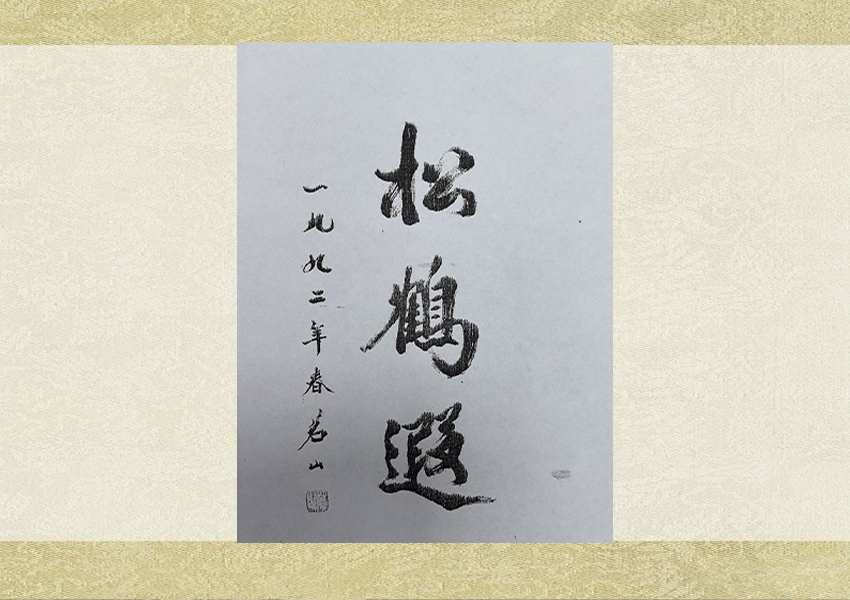 松鶴遐
一九九二年春名山